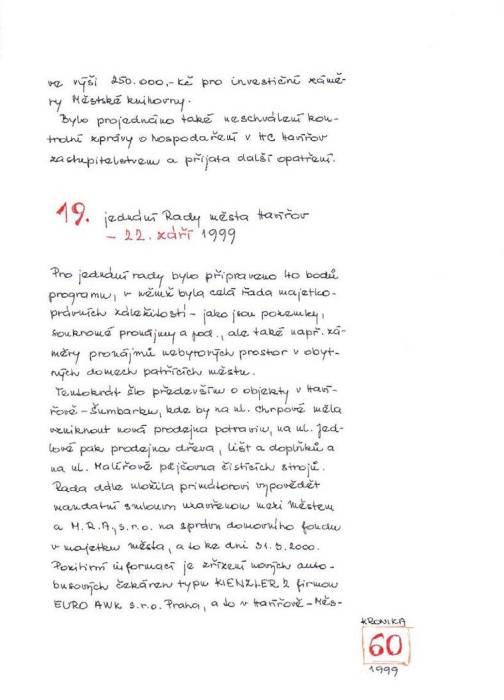 ve výši 250.000,-Kč pro investiční zámě-
ry Městské knihovny.
Bylo projednáno také neschválení kon-
trolní zprávy o hospodaření v HC Havířov
zastupitelstvem a přijata další opatření.
19. jednání Rady města Havířov
- 22. září 1999
Pro jednání rady bylo připraveno 40 bodů
programu, v němž byla celá řada majetko-
právních záležitostí - jako jsou pozemky,
soukromé pronájmy a pod., ale také např. zá-
měry pronájmů nebytových prostor v obyt-
ných domech patřících městu.
Tentokrát šlo především o objekty v Haví-
řově - Šumbarku, kde by na ul. Chrpové měla
vzniknout nová prodejna potravin, na ul. Jed-
lové pak prodejna dřeva, lišt a doplňků a
na ul. Malířově půjčovna čistících strojů.
Rada dále uložila primátorovi vypovědět
mandatní smlouvu uzavřenou mezi městem
a M.R.A., s.r.o. na správu domovního fondu
v majetku města, a to ke dni 31.3.2000.
Pozitivní informací je zřízení nových auto-
busových čekáren typu KIENZLER 2 firmou
EURO AWK s.r.o. Praha, a to v Havířově - Měs-
KRONIKA
60
1999